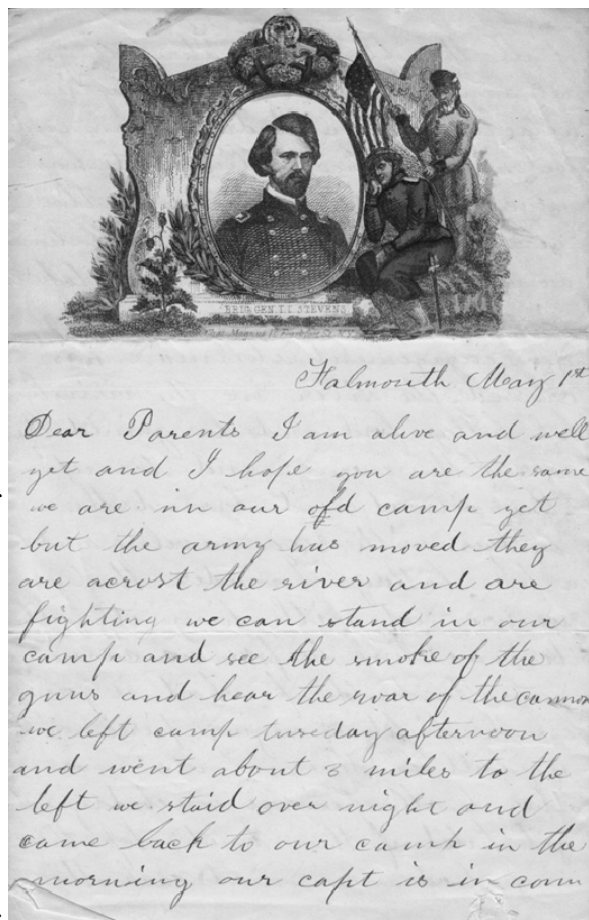 BRIG. GEN. I. I. STEVENS
Falmouth May 1st
Dear Parents I am alive and well
yet and I hope you are the same
we are inn our old camp yet
but the army has moved they
are acrost the river and are
fighting we can stand in our
camp and see the smoke of the
guns and hear the roar of the cannon
we left camp tuesday afternoon
and went about 3 miles to the
left we staid over night and
came back to our camp in the
morning our capt is in com